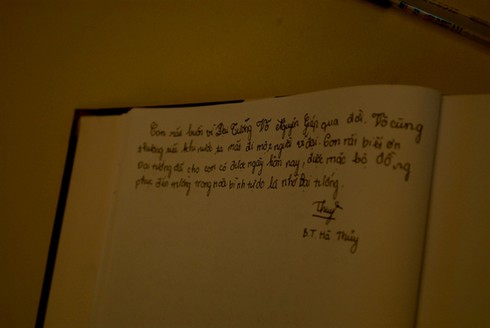 Con rất buồn vì Đại Tướng Võ Nguyên Giáp qua đời. Vô cùng
thương xót khi nước ta mất đi một người vĩ đại. Con rất biết ơn
Đại tướng đã cho con có được ngày hôm nay, được mặc bộ đồng
phục đến trường trong hoà bình tự do là nhờ Đại tướng.
Thuỷ
B.T. Hà Thủy